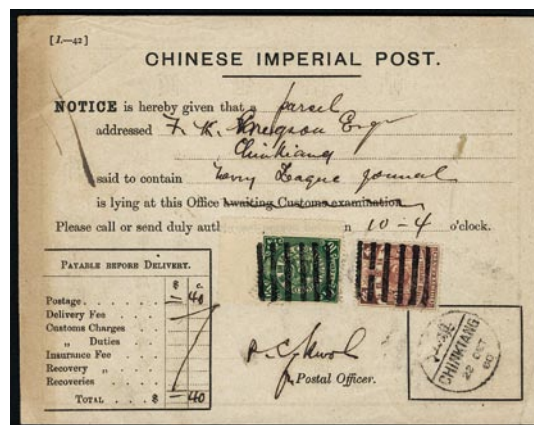 [I.—42]
CHINESE IMPERIAL POST.
NOTICE is hereby given that a parcel
addressed F. K. Esqr
Chinkiang
said to contain Navy League Journal
is lying at this Office Awaiting Customs examination
Please call or send duly auth n 10-4 o'clock.
PAYABLE BEFORE DELIVERY.
$ c.
Postage . . . . . — 40
Delivery Fee
Customs Charges
„ Duties
Insurance Fee
Recovery „
Recoveries
TOTAL . . . $ — 40
Postal Officer.
CHINKIANG
22 OCT